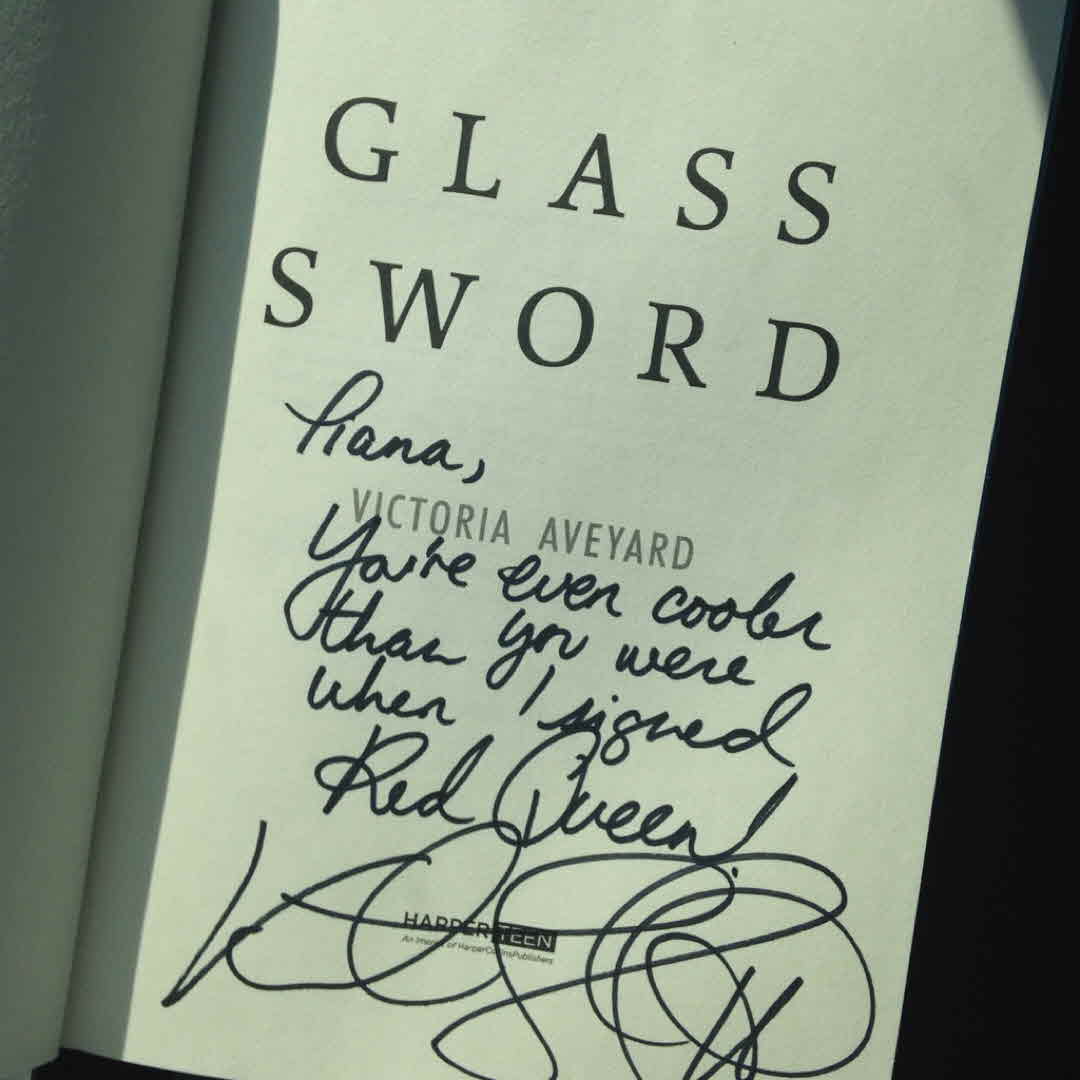 GLASS
SWORD
Piana,
VICTORIA AVEYARD
You're even cooler
than you were
when I signed
Red Queen!
HARPER TEEN
An Imprint of HarperCollinsPublishers